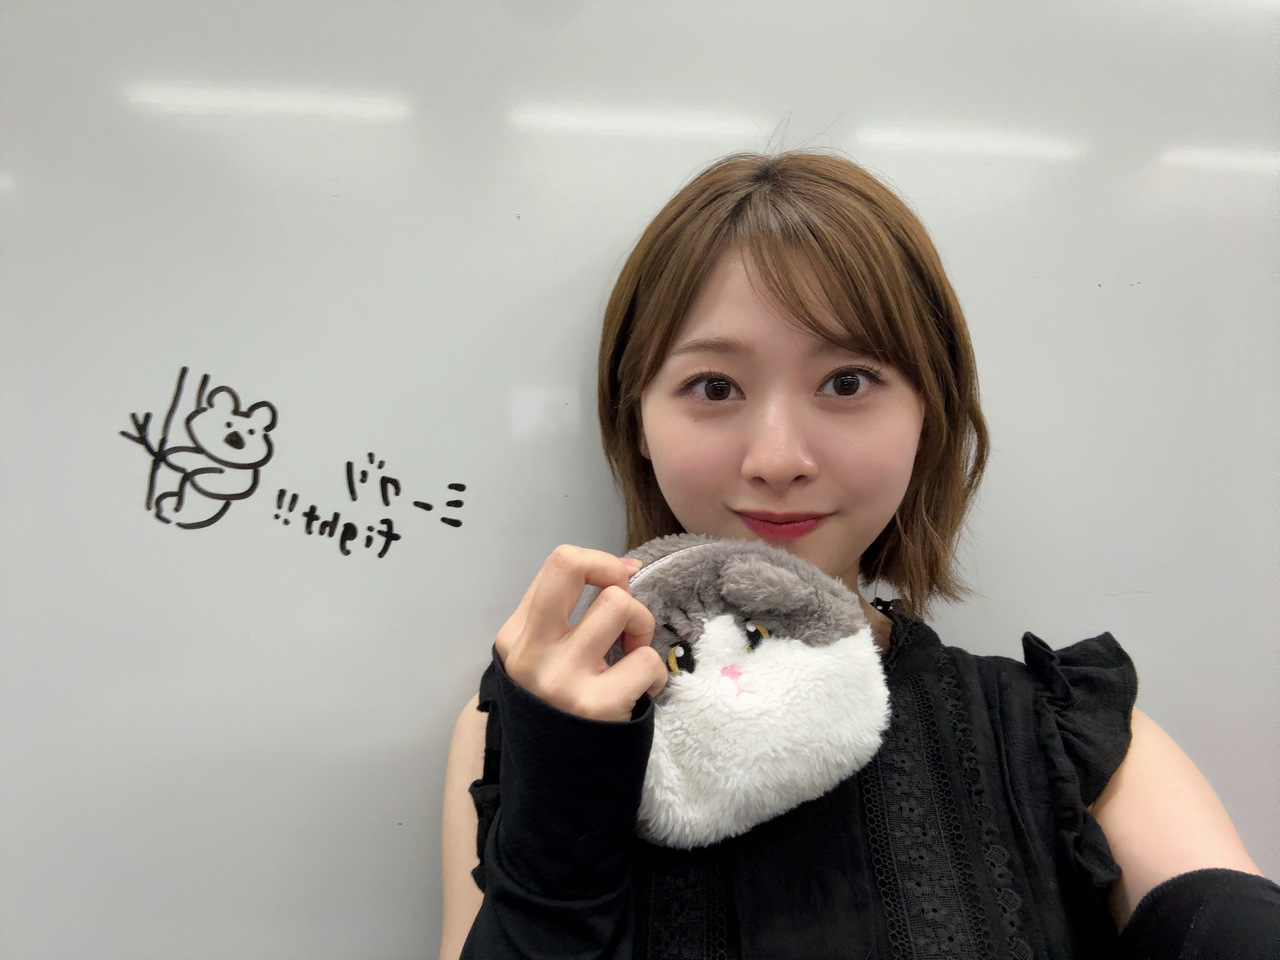 ミーグリ
fight!!